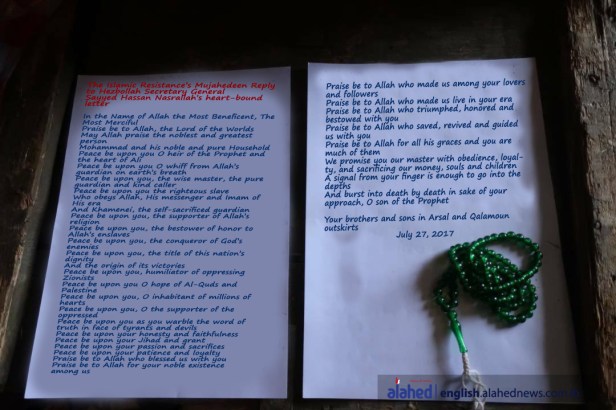 The Islamic Resistance's Mujahedeen Reply
to Hezbollah Secretary General
Sayyed Hassan Nasrallah's heart-bound
letter
In the Name of Allah the Most Beneficent, The
Most Merciful
Praise be to Allah, the Lord of the Worlds
May Allah praise the noblest and greatest
person
Mohammad and his noble and pure Household
Peace be upon you O heir of the Prophet and
the heart of Ali
Peace be upon you O whiff from Allah's
guardian on earth's breath
Peace be upon you, the wise master, the pure
guardian and kind caller
Peace be upon you the righteous slave
Who obeys Allah, His messenger and Imam of
His era
And Khamenei, the self-sacrificed guardian
Peace be upon you, the supporter of Allah's
religion
Peace be upon you, the bestower of honor to
Allah's enslaves
Peace be upon you, the conqueror of God's
enemies
Peace be upon you, the title of this nation's
dignity
And the origin of its victories
Peace be upon you, humiliator of oppressing
Zionists
Peace be upon you O hope of Al-Quds and
Palestine
Peace be upon you, O inhabitant of millions of
hearts
Peace be upon you, O the supporter of the
oppressed
Peace be upon you as you warble the word of
truth in face of tyrants and devils
Peace be upon your honesty and faithfulness
Peace be upon your Jihad and grant
Peace be upon your passion and sacrifices
Peace be upon your patience and loyalty
Praise be to Allah who blessed us with you
Praise be to Allah for your noble existence
among us
Praise be to Allah who made us among your lovers
and followers
Praise be to Allah who made us live in your era
Praise be to Allah who triumphed, honored and
bestowed with you
Praise be to Allah who saved, revived and guided
us with you
Praise be to Allah for all his graces and you are
much of them
We promise you our master with obedience, loyal-
ty, and sacrificing our money, souls and children
A signal from your finger is enough to go into the
depths
And burst into death by death in sake of your
approach, O son of the Prophet
Your brothers and sons in Arsal and Qalamoun
outskirts
July 27, 2017
alahed english.alahednews.com.lb